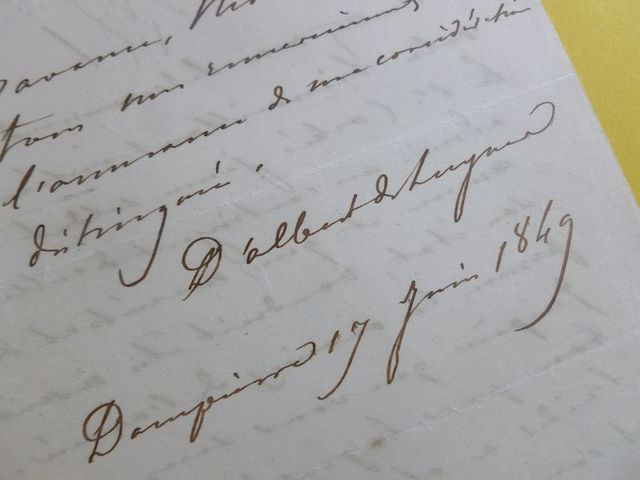 d'avance,
tous mes remerciements
l'assurance de ma considération
distinguée.
D'albert de Luynes
Dampierre 17 Juin 1849